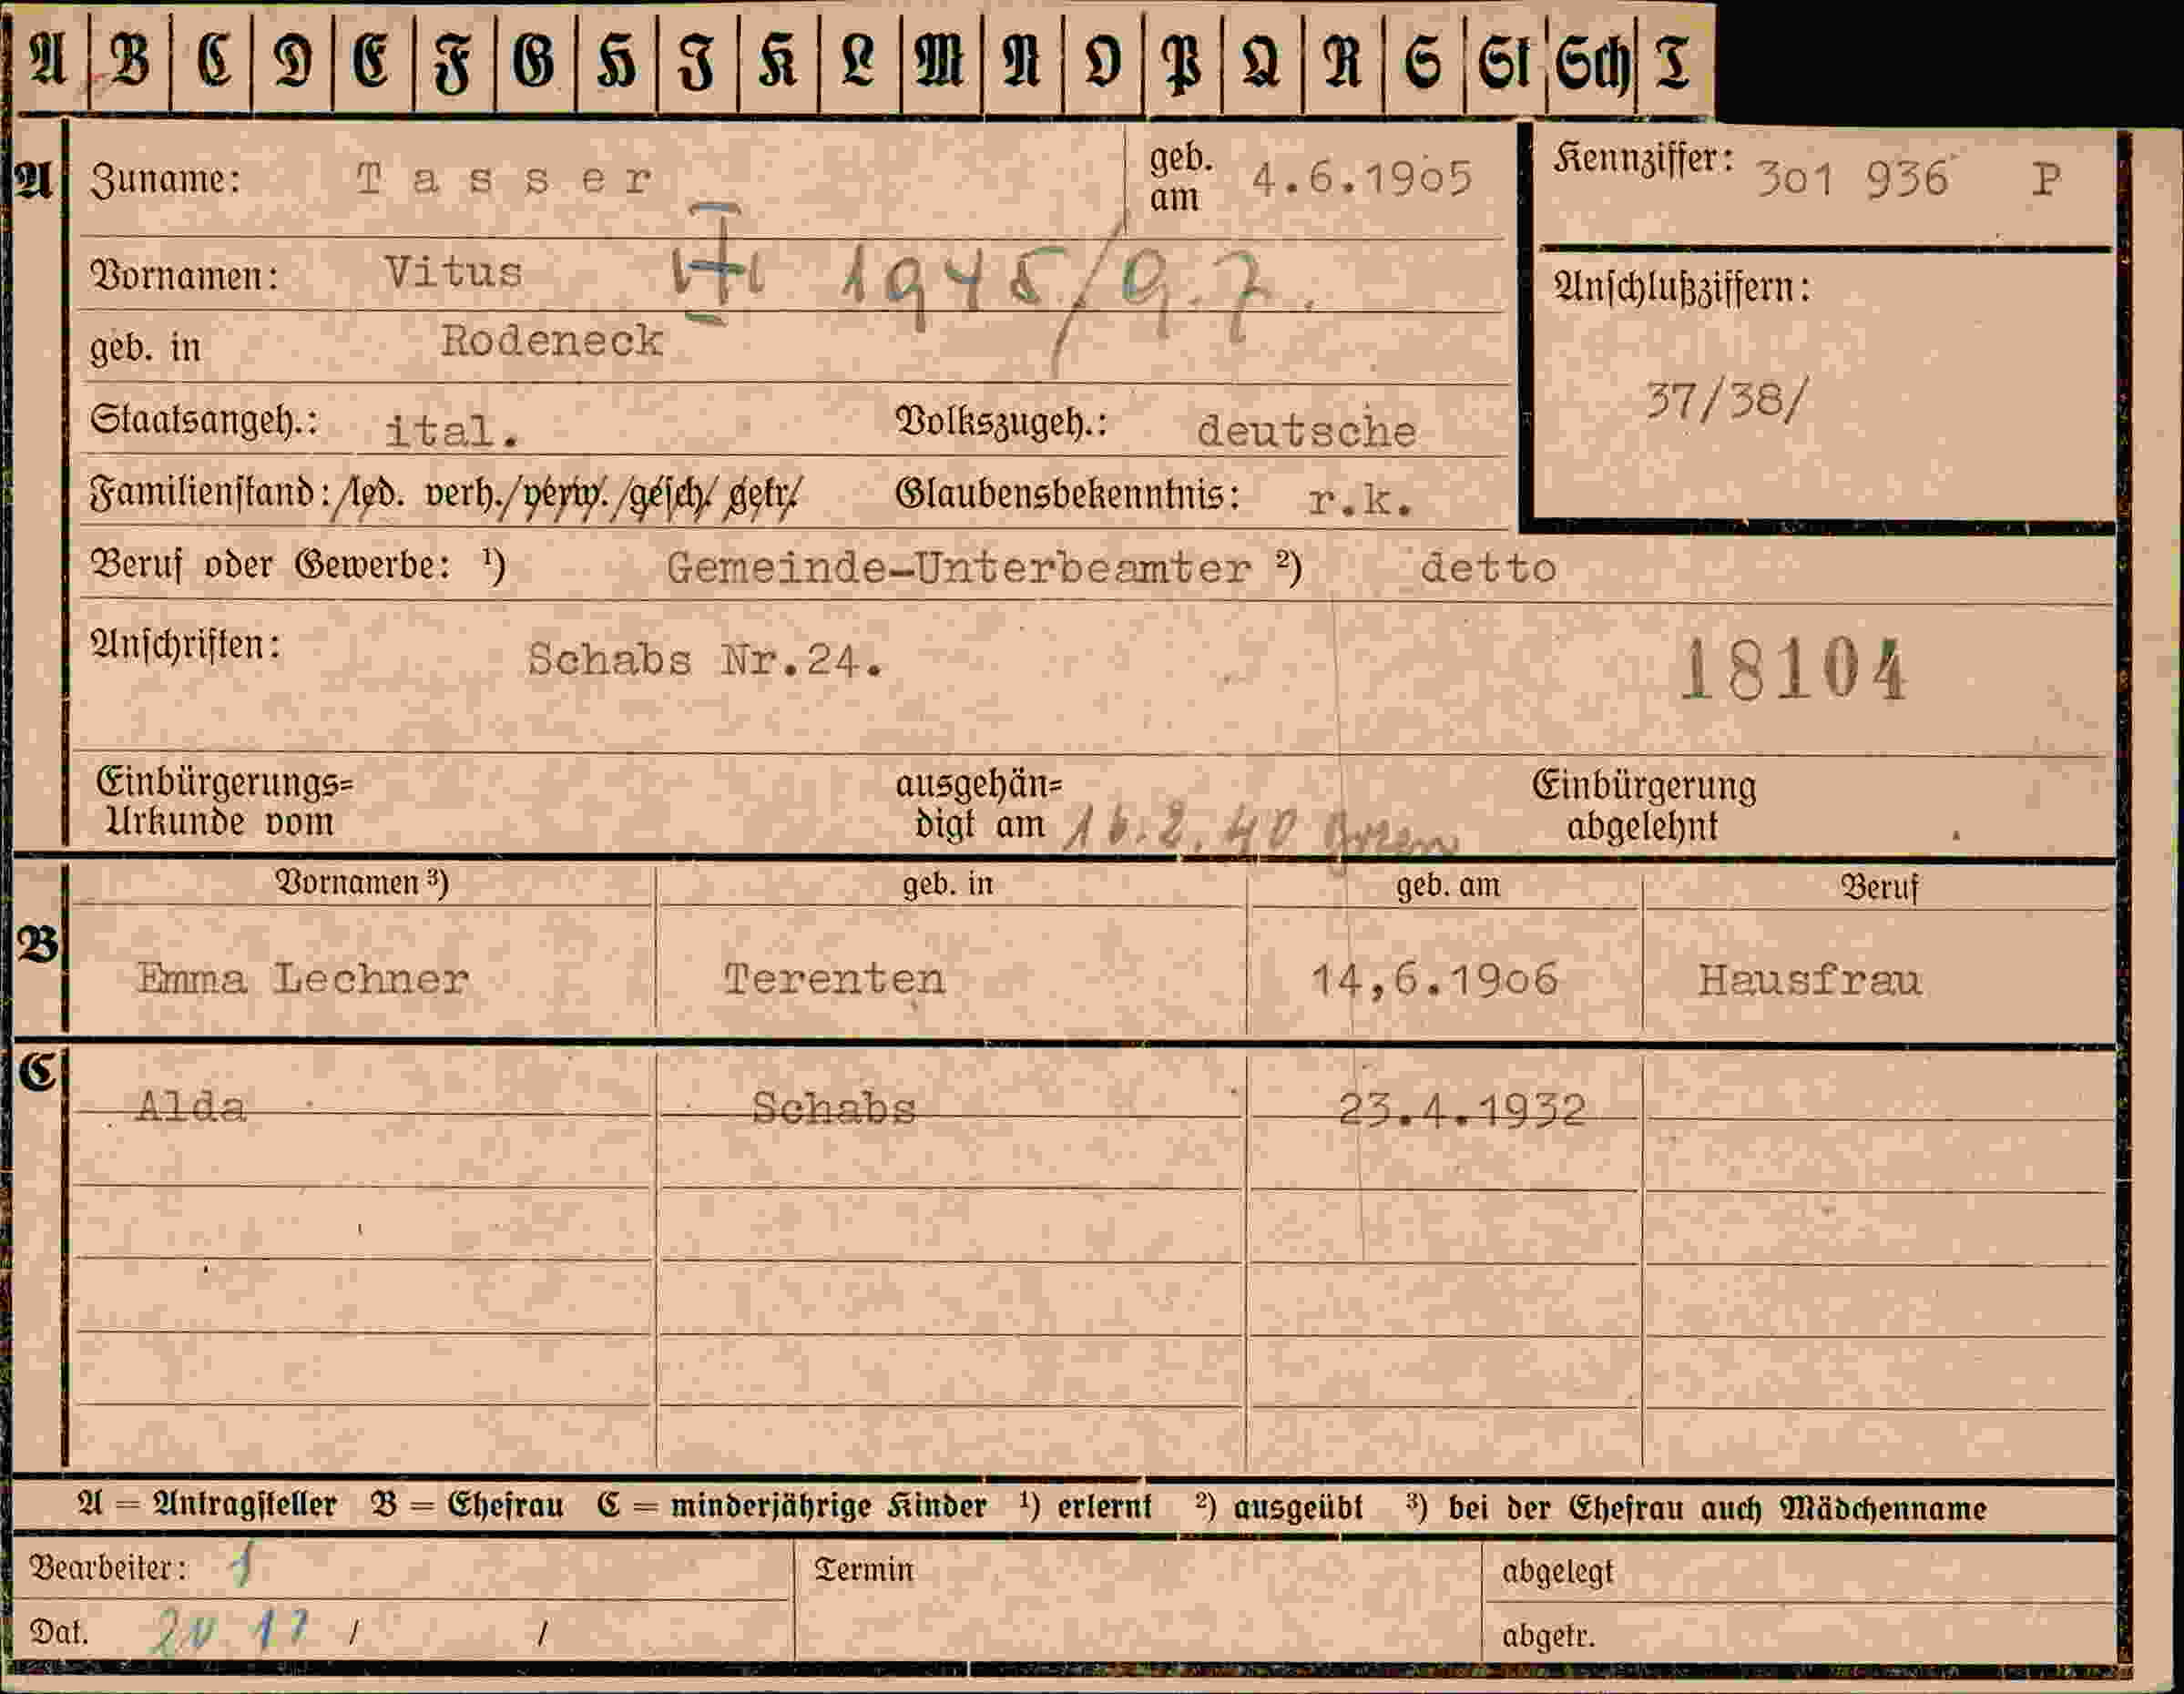 A B C D E F G H I K L M N O P Q R S St Sch T
A Zuname: Tasser geb. am 4.6.1905 Kennziffer: 301 936 P
Vornamen: Vitus 1945/9.7.
Anschlußziffern:
geb. in Rodeneck
37/38/
Staatsangeh.: ital. Volkszugeh.: deutsche
Familienstand: /led. verh./verw./gesch/ getr/ Glaubensbekenntnis: r.k.
Beruf oder Gewerbe: ¹) Gemeinde-Unterbeamter ²) detto
Anschriften: Schabs Nr.24. 18104
Einbürgerungs= ausgehän= Einbürgerung
Urkunde vom digt am 16.2.40 abgelehnt
Vornamen ³) geb. in geb. am Beruf
B Emma Lechner Terenten 14,6.1906 Hausfrau
C Alda Schabs 23.4.1932
A = Antragsteller B = Ehefrau C = minderjährige Kinder ¹) erlernt ²) ausgeübt ³) bei der Ehefrau auch Mädchenname
Bearbeiter: Termin abgelegt
Dat. / / abgetr.